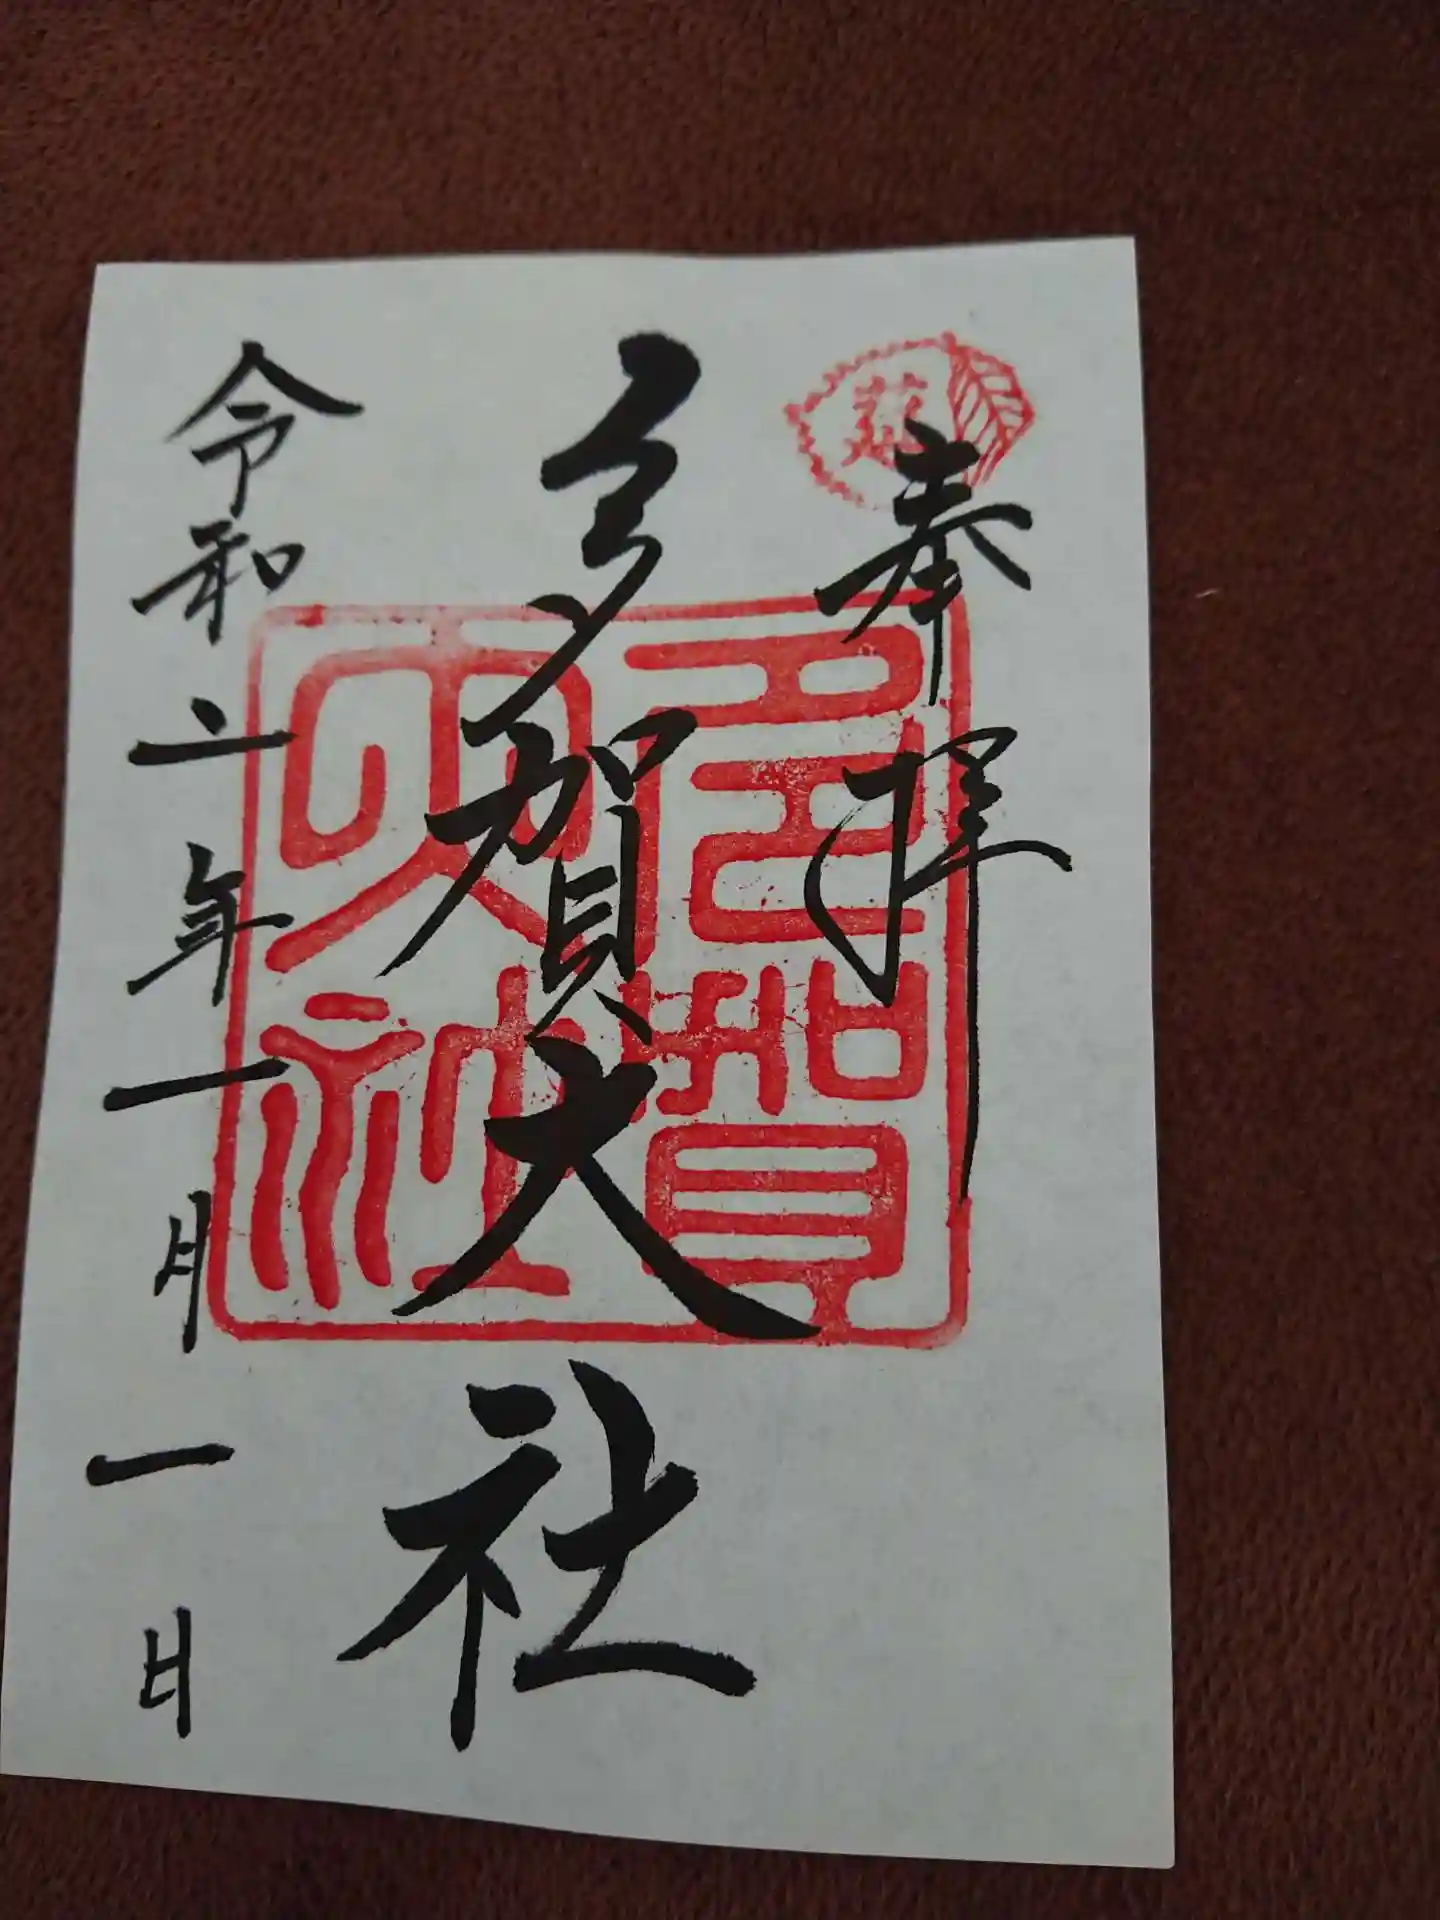 莚
奉拝
多賀大社
多賀
大社
令和二年一月一日